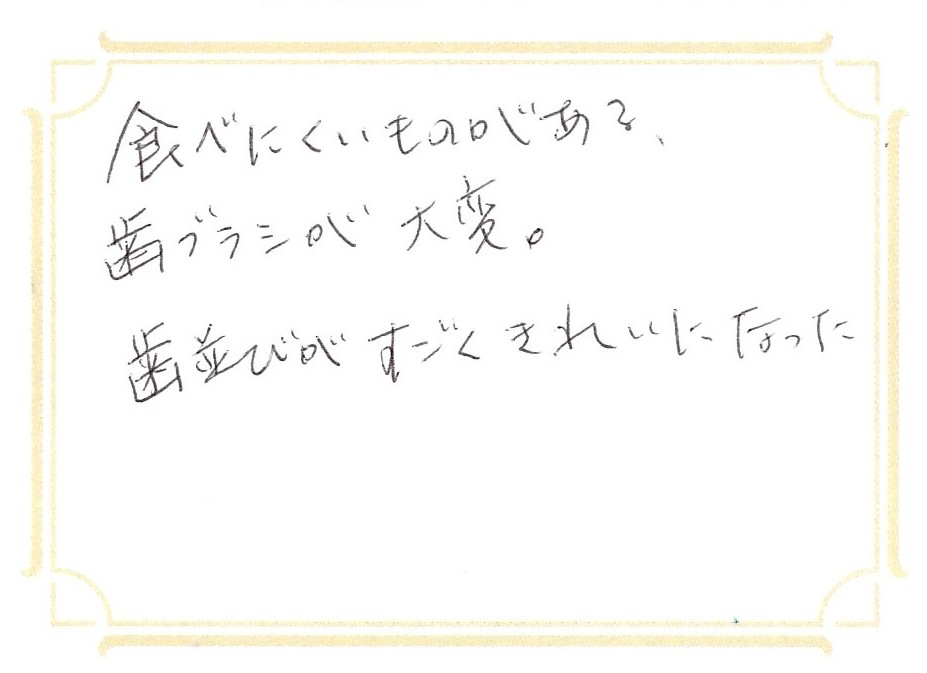 食べにくいものがある、
歯ブラシが大変。
歯並びがすごくきれいになった